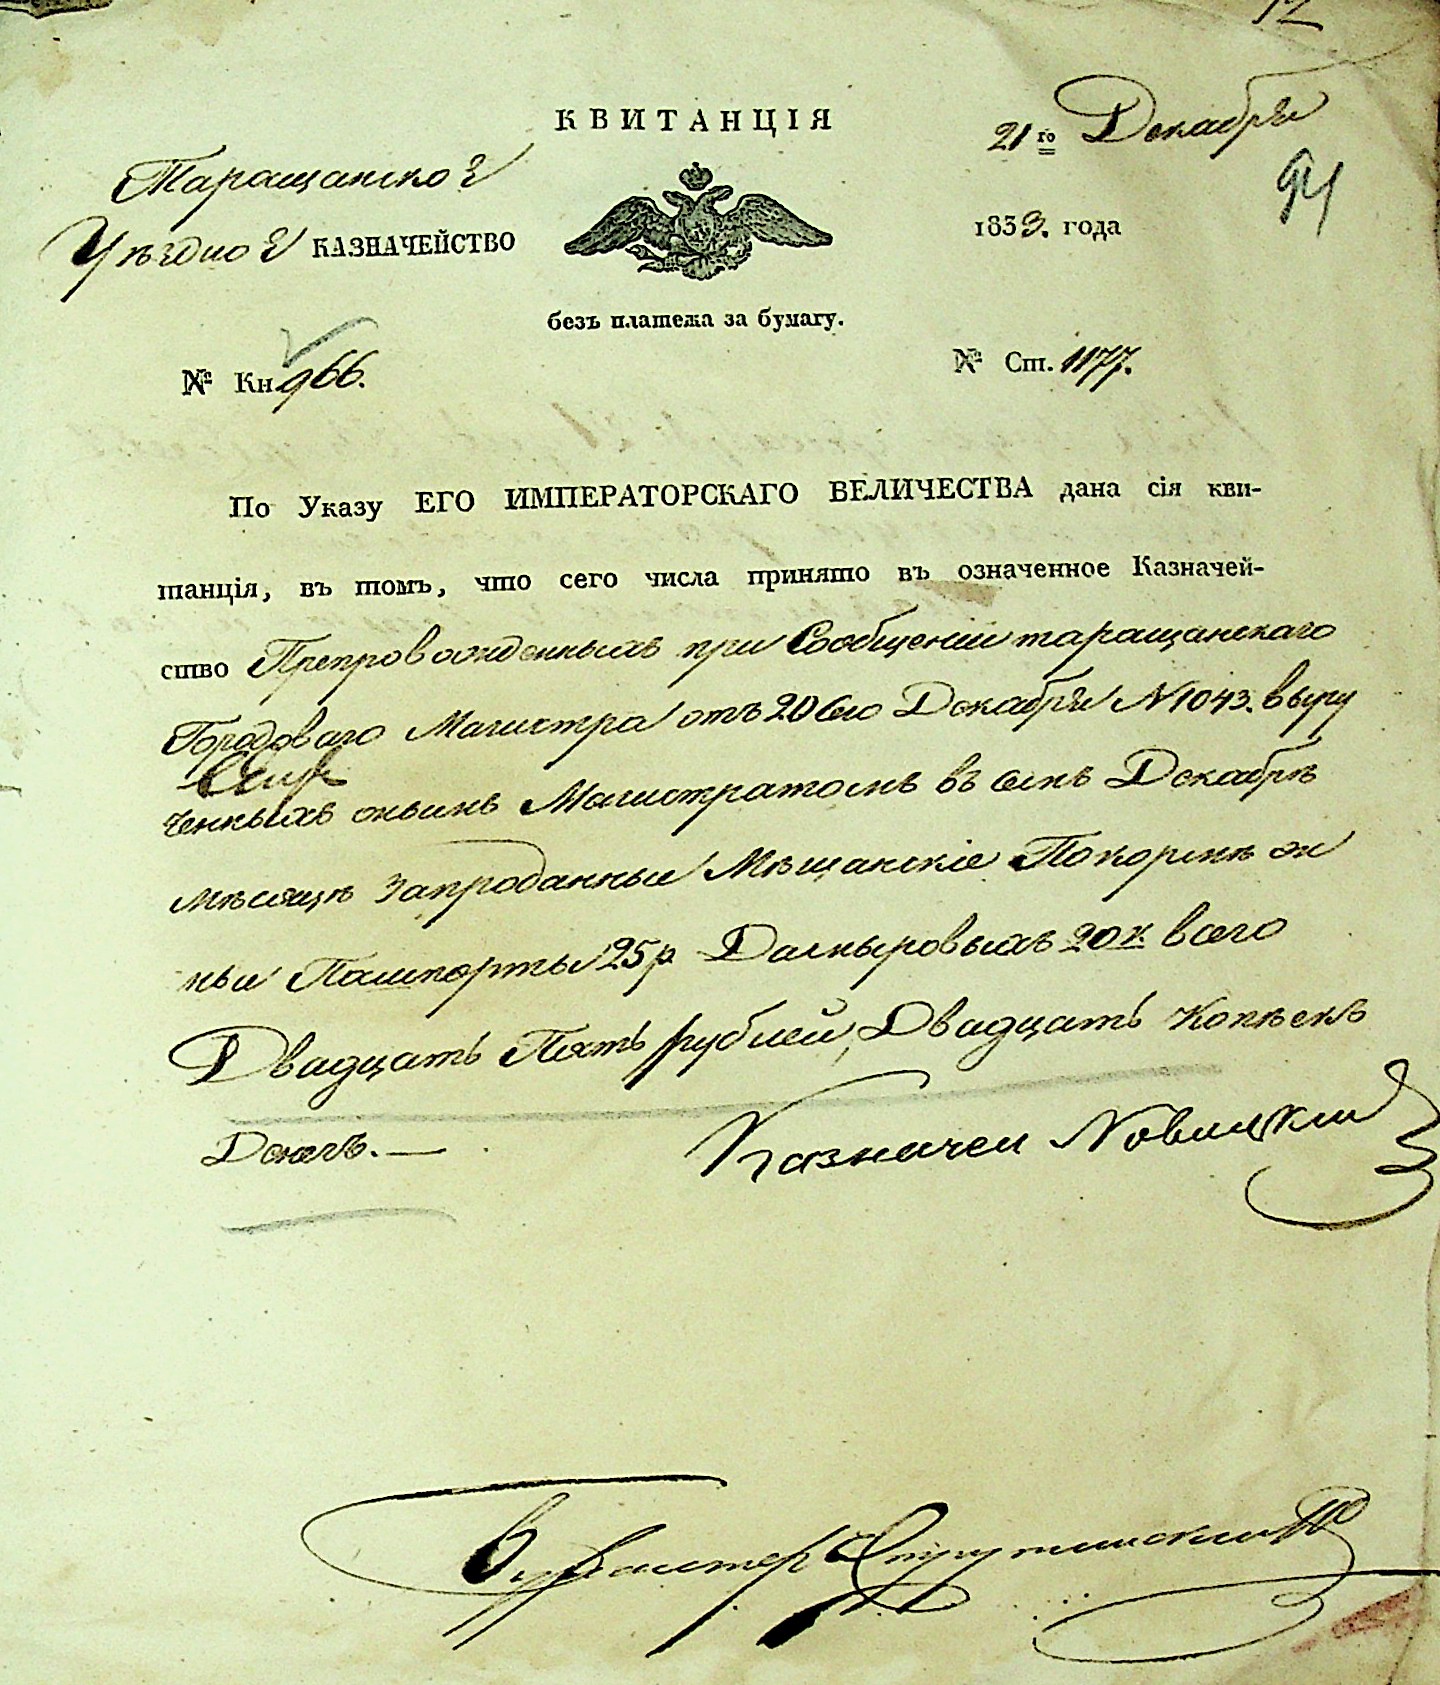 12
КВИТАНЦІЯ
21го Декабря
94
Таращанское
Уѣздное КАЗНАЧЕЙСТВО
1833. года
безъ платежа за бумагу.
№ Кн. 966.
№ Ст. 1177.
По Указу ЕГО ИМПЕРАТОРСКАГО ВЕЛИЧЕСТВА дана сія кви-
танція, въ томъ, что сего числа принято въ означенное Казначей-
ство Препровожденныхъ при Сообщеніи таращанскаго
Городоваго Магистра отъ 20 сего Декабря N 1043. выру
ченныхъ онымъ Магистратомъ въ семъ Декабрѣ
мѣсяцѣ запроданные Мѣщанскіе Покормеж
ные Пашпорты 25 р 20 к всего
Двадцать Пять рублей, Двадцать Копѣекъ
Денегъ. —
Казначеи Новицкий
Бухгалтер